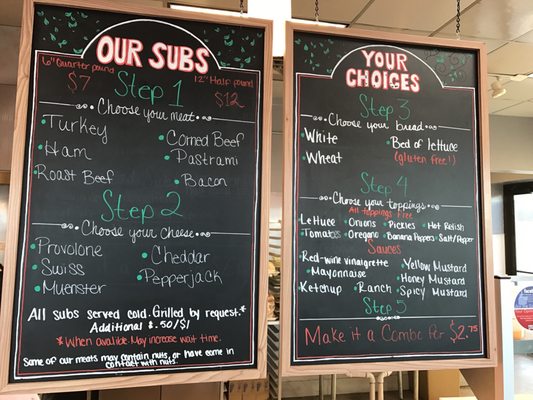 OUR SUBS
6" Quarter pound
$7
12" Half pound
$12
Step 1
Choose your meat
Turkey
Ham
Roast Beef
Corned Beef
Pastrami
Bacon
Step 2
Choose your cheese
Provolone
Swiss
Muenster
Cheddar
Pepperjack
All subs served cold. Grilled by request.*
Additional $.50/$1
*When availible. May increase wait time.
Some of our meats may contain nuts, or have come in
contact with nuts.
YOUR
CHOICES
Step 3
Choose your bread
White
Wheat
Bed of lettuce
(gluten free!)
Step 4
Choose your toppings
All toppings Free
Lettuce Onions Pickles Hot Relish
Tomatoes Oregano Banana Peppers Salt/Pepper
Sauces
Red-wine vinaigrette
Mayonnaise
Ketchup Ranch
Yellow Mustard
Honey Mustard
Spicy Mustard
Step 5
Make it a Combo for $2.75